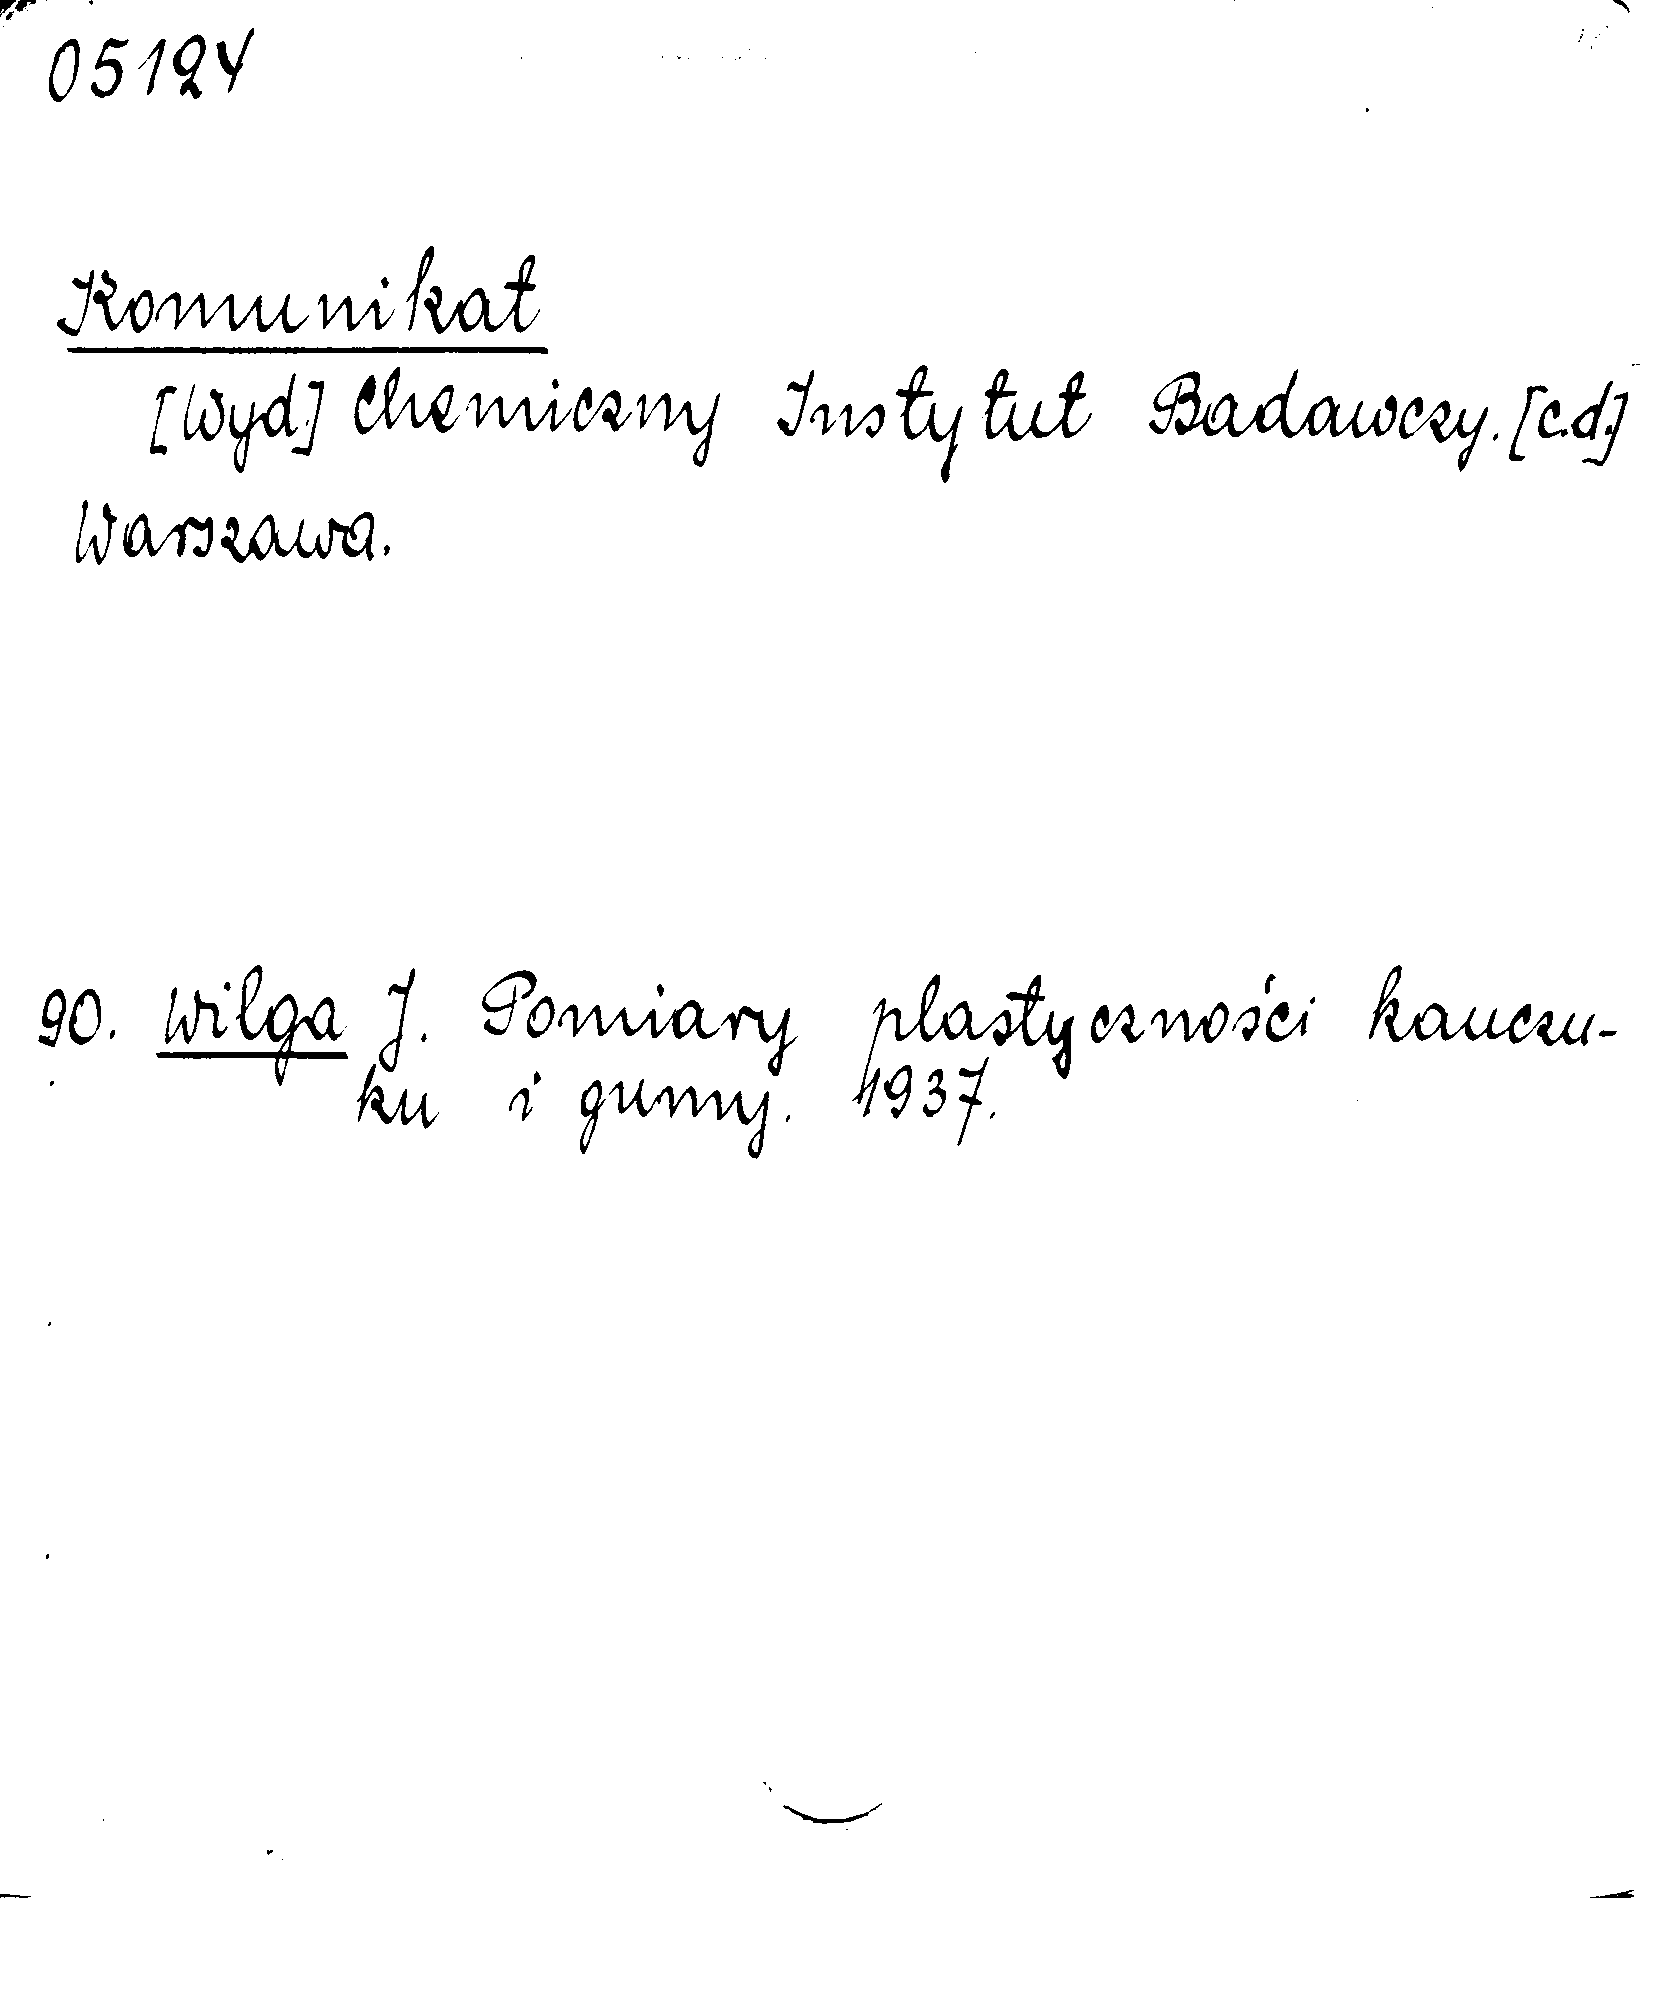 05124
Komunikat
[Wyd.] Chemiczny Instytut Badawczy. [c.d.]
Warszawa.
90. Wilga J. Pomiary plastyczności kauczu-
ku i gumy. 1937.